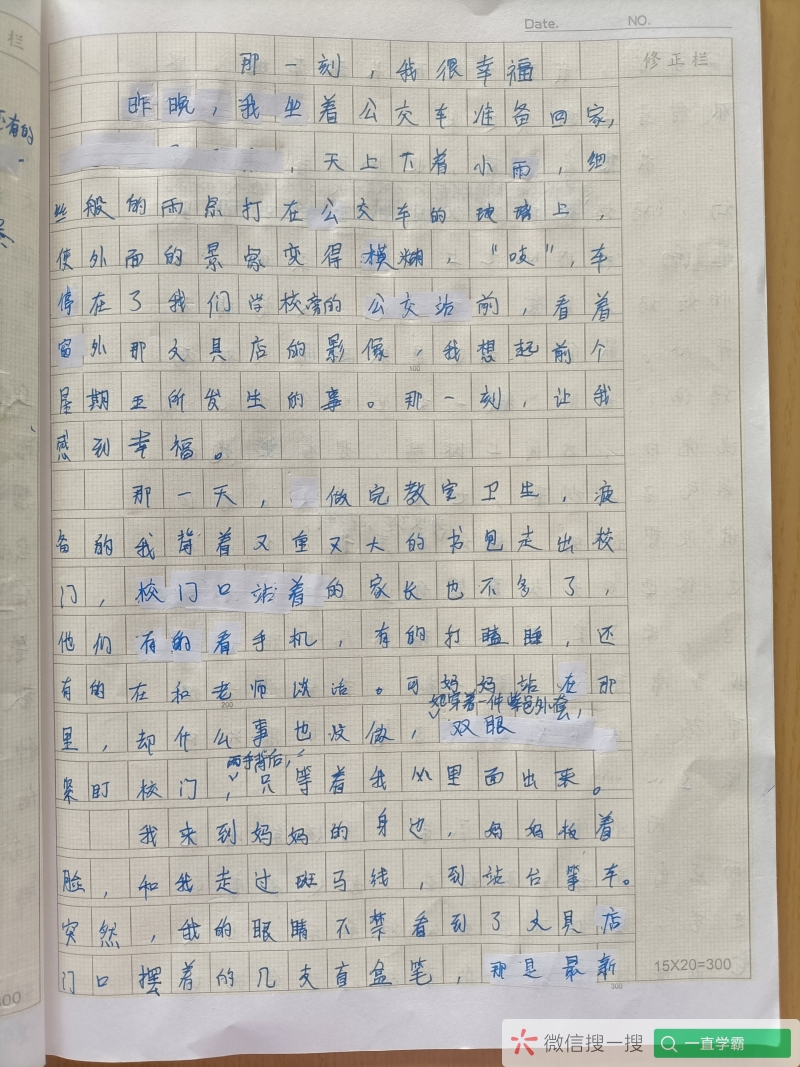 Date. NO.
栏
修正栏
还有的
那一刻，我很幸福
昨晚，我坐着公交车准备回家，
，天上下着小雨，细
丝般的雨点打在公交车的玻璃上，
使外面的景象变得模糊，“吱”，车
停在了我们学校旁的公交站前，看着
窗外那文具店的影像，我想起前个
100
星期五所发生的事。那一刻，让我
感到幸福。
那一天，做完教室卫生，疲
备的我背着又重又大的书包走出校
门，校门口站着的家长也不多了，
他们有的看手机，有的打瞌睡，还
有的在和老师谈话。可妈妈站在那
200
她穿着一件紫色外套，
里，却什么事也没做，双眼
两手背后，
紧盯校门，只等着我从里面出来。
我来到妈妈的身边，妈妈板着
脸，和我走过斑马线，到站台等车。
突然，我的眼睛不禁看到了文具店
门口摆着的几支盲盒笔，那是最新
300
15X20=300
300
微信搜一搜 一直学霸